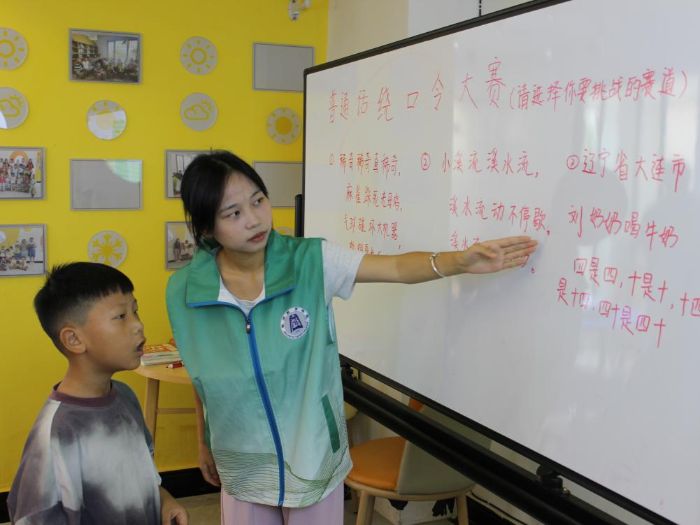 普通话绕口令大赛(请选择你要挑战的赛道)
① 稀奇稀奇真稀奇,
麻雀踩死老母鸡,
② 小溪流溪水流,
溪水流动不停歇,
③ 辽宁省大连市
刘奶奶喝牛奶
四是四,十是十,十四
是十四,四十是四十